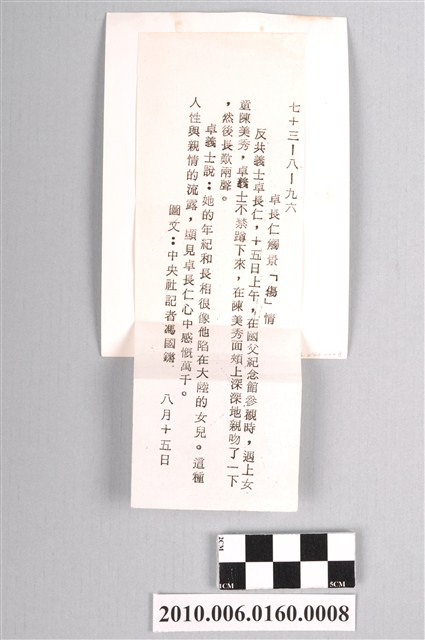 七十三－八－九六
卓長仁觸景「傷」情
反共義士卓長仁，十五日上午，在國父紀念館參觀時，遇上女
童陳美秀，卓義士不禁蹲下來，在陳美秀面頰上深深地親吻了一下
，然後長歎兩聲。
卓義士說：她的年紀和長相很像他陷在大陸的女兒。這種
人性與親情的流露，顯見卓長仁心中感慨萬千。
圖文：中央社記者馮國鏘 八月十五日
2CM
1CM
5CM
2010.006.0160.0008